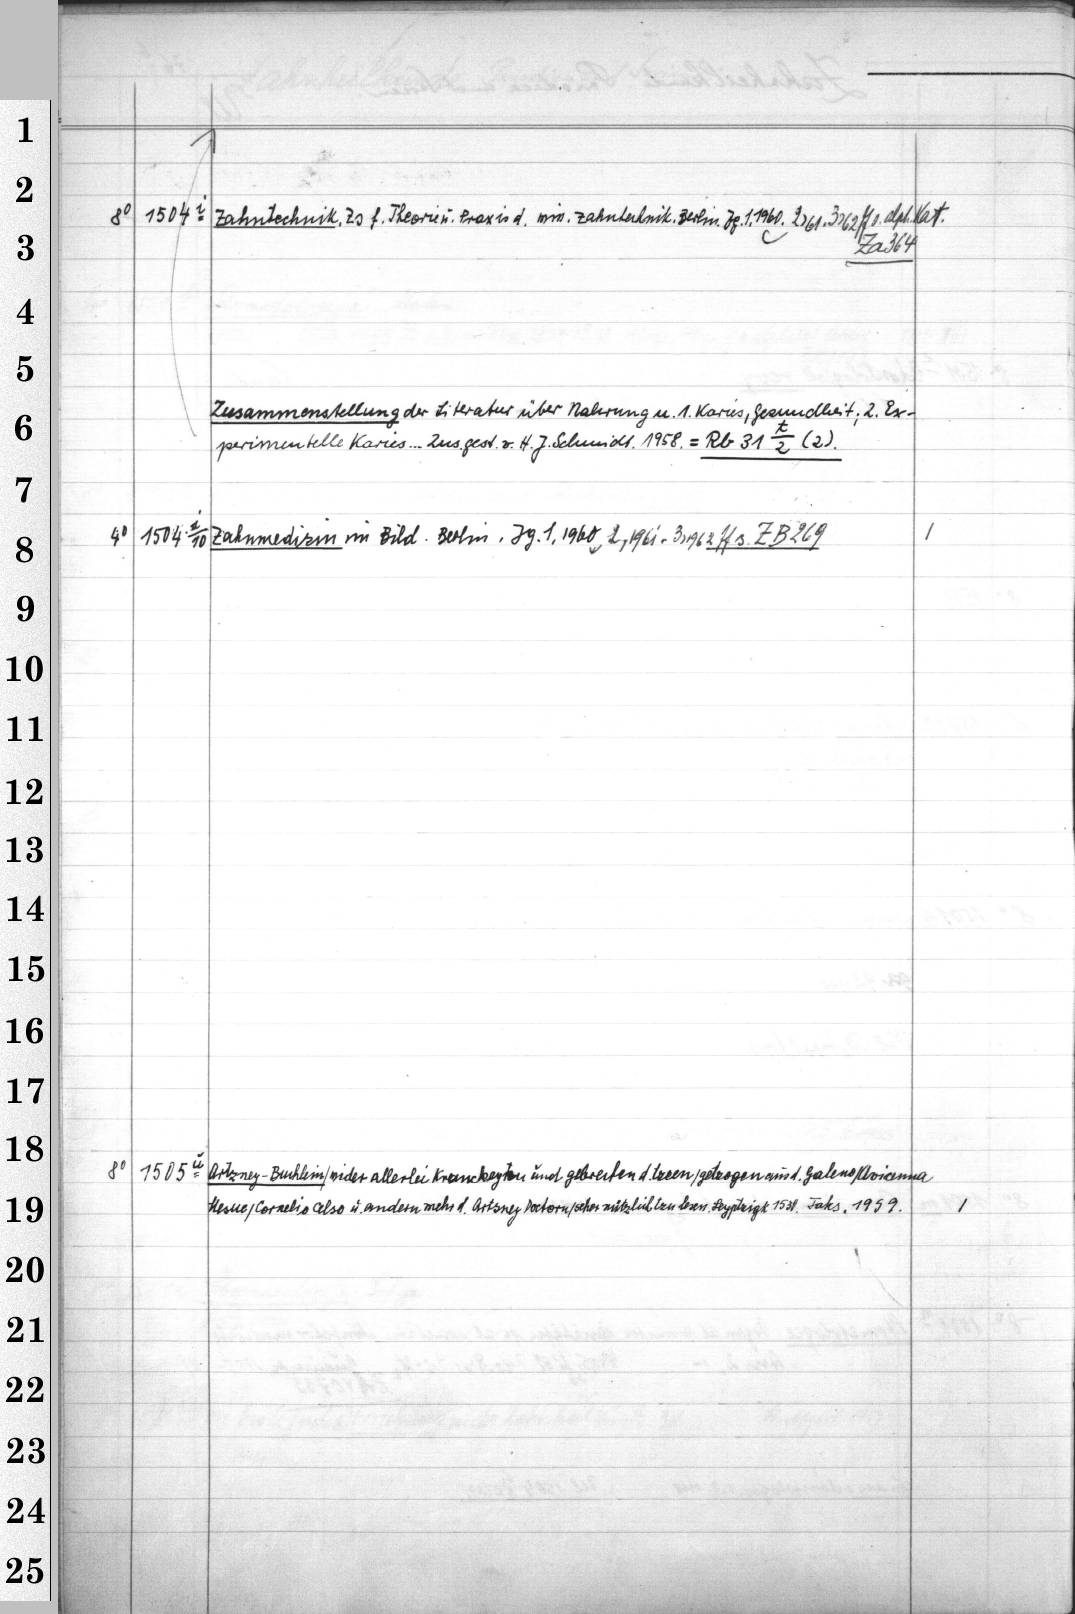 1
2
8° 1504 i Zahntechnik. Zs f. Theorie u. Praxis d. wiss. Zahntechnik. Berlin. Jg. 1, 1960. 2, 61. 3, 62 ff s. alph. Kat.
3
Za 364
4
5
Zusammenstellung der Literatur über Nahrung u. 1. Karies, Gesundheit; 2. Ex-
6
perimentelle Karies... Zus.gest. v. H. J. Schmidt. 1958. = Rb 31 t/2 (2).
7
4° 1504 i/10 Zahnmedizin im Bild. Berlin. Jg. 1, 1960, 2, 1961. 3, 1962 ff s. ZB 269 1
8
9
10
11
12
13
14
15
16
17
18
8° 1505 ü Artzney-Buchlein/wider allerlei Kranckeyten und gebrechen d. tzeen/getzogen aus d. Galeno/Avicenna
19
Mesue/Cornelio Celso u. andern mehr d. Artzney Doctorn/seher nützlich tzu lesen. Leyptzigk 1530. Faks. 1959. 1
20
21
22
23
24
25